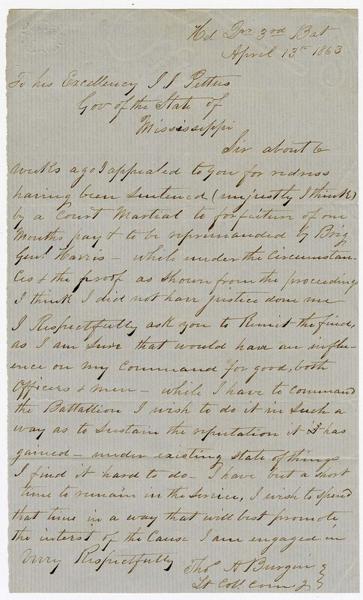 Hd Qrs 3rd Bat
April 13th 1863
To his Excellency J J Pettus
Gov of the State of
Mississippi
Sir about 6
weeks ago I appealed to you for redress
having been Sentenced (unjustly I think)
by a Court Martial to forfeiture of one
Months pay & to be reprimanded by Brig
Genl Harris - while under the Circumstan-
ces & the proof as Shown from the proceedings
I think I did not have justice done me
I Respectfully ask you to Remit the find,
as I am Sure that would have an influ-
ence on my Command for good, both
Officers & men - while I have to command
the Battallion I wish to do it in Such a
way as to Sustain the reputation it has
gained - under existing state of things
I find it hard to do - I have but a short
time to remain in the Service, I wish to spend
that time in a way that will best promote
the interst of the Cause I am engaged in
Very Respectfully
Thos A Burgin
Lt Coll Com